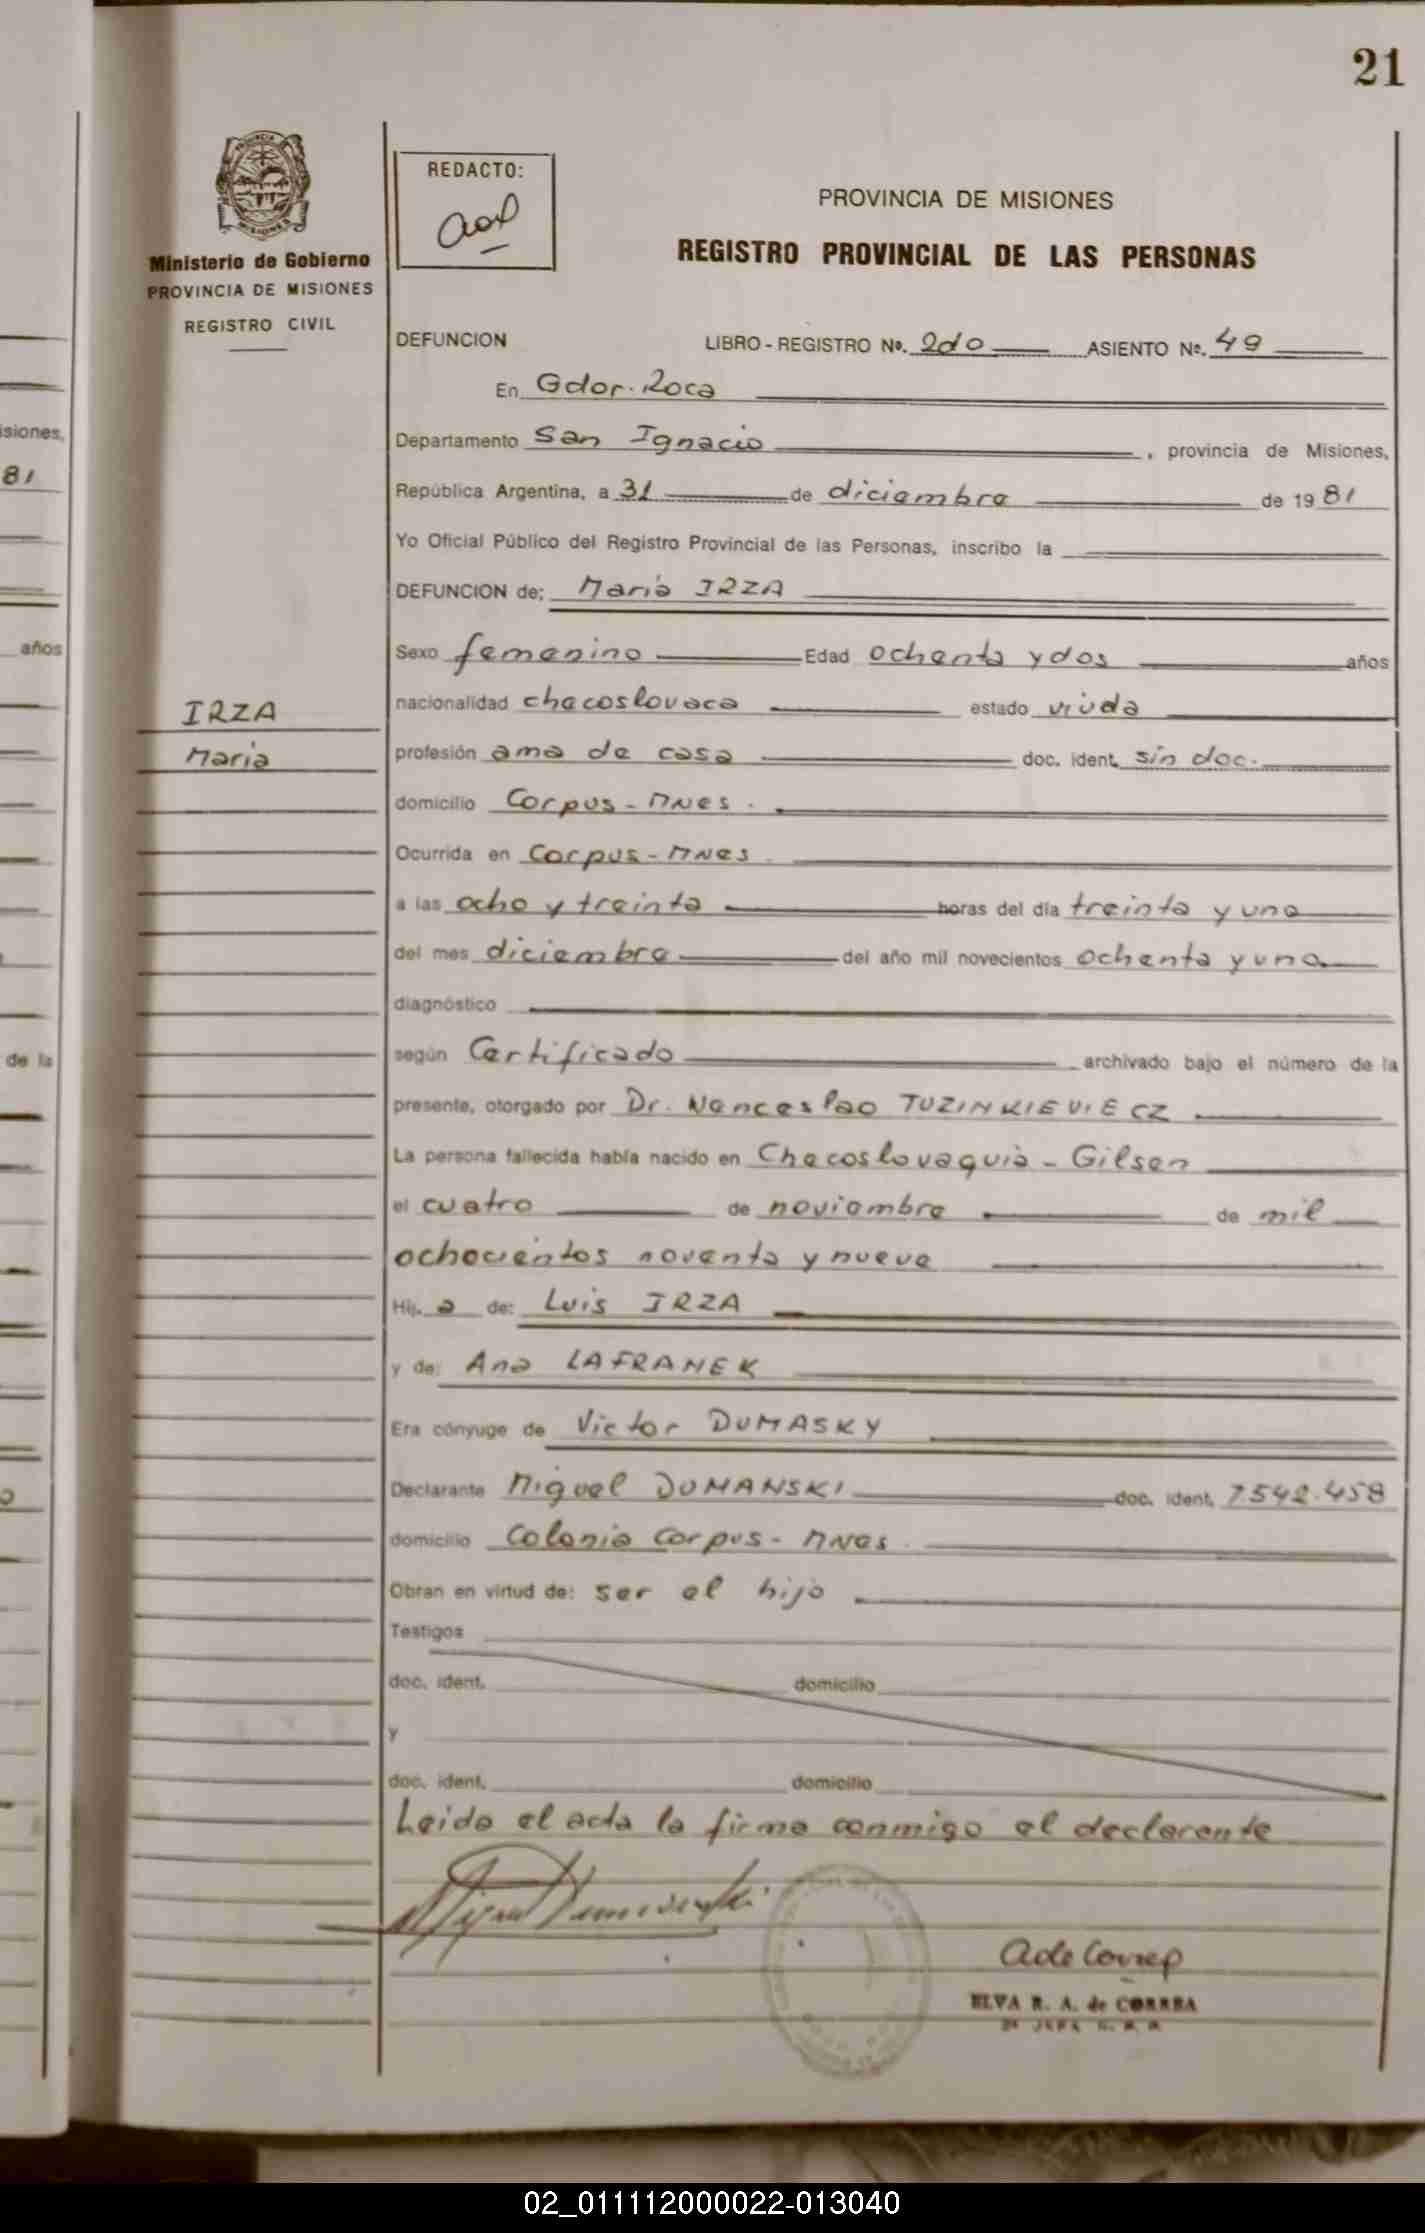 21
REDACTO:
PROVINCIA DE MISIONES
REGISTRO PROVINCIAL DE LAS PERSONAS
Ministerio de Gobierno
PROVINCIA DE MISIONES
REGISTRO CIVIL
DEFUNCION LIBRO-REGISTRO Nº. 2do ASIENTO Nº. 49
En Gdor. Roca
Departamento San Ignacio, provincia de Misiones,
República Argentina, a 31 de diciembre de 1981
Yo Oficial Público del Registro Provincial de las Personas, inscribo la
DEFUNCION de: Maria IRZA
Sexo femenino Edad ochenta y dos años
IRZA
nacionalidad checoslovaca estado viuda
Maria
profesión ama de casa doc. ident. sin doc.
domicilio Corpus - Mnes.
Ocurrida en Corpus - Mnes.
a las ocho y treinta horas del día treinta y uno
del mes diciembre del año mil novecientos ochenta y uno
diagnóstico
según Certificado archivado bajo el número de la
presente, otorgado por Dr. Wenceslao TUZINKIEVIECZ
La persona fallecida había nacido en Checoslovaquia - Gilsen
el cuatro de noviembre de mil
ochocientos noventa y nueve
Hij a de: Luis IRZA
y de: Ana LAFRANEK
Era cónyuge de Victor DUMASKY
Declarante Miguel DUMANSKI doc. ident. 7.542.458
domicilio Colonia Corpus - Mnes.
Obran en virtud de: ser el hijo
Testigos
doc. ident. domicilio
y
doc. ident. domicilio
Leida el acta la firma conmigo el declarente
ELVA R. A. de CORREA
isiones,
81
años
de la
02_011112000022-013040